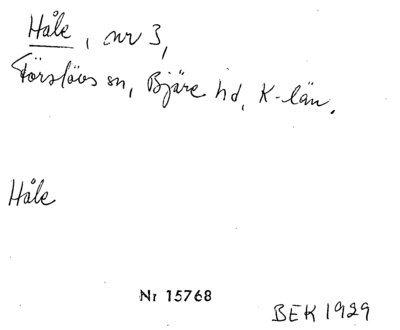 Håle, nr 3,
Förslövs sn, Bjäre hd, K-län.
Håle
Nr 15768
BEK 1929